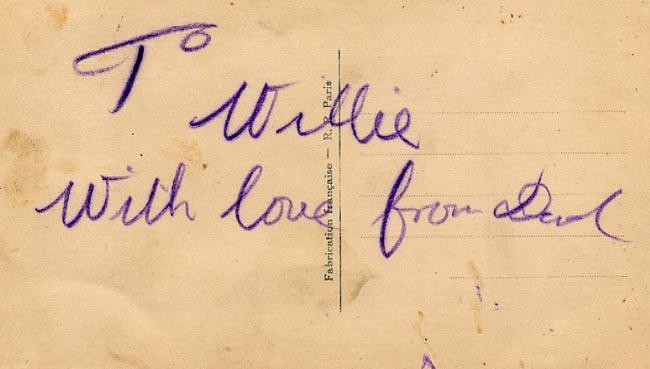 To
Willie
With love from Dad
Fabrication française — R. P. Paris